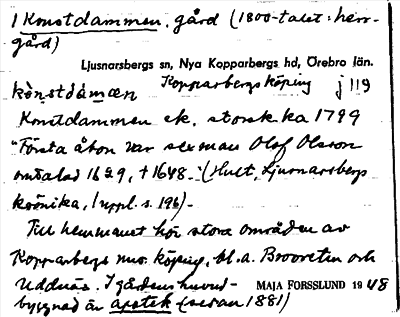 1 Konstdammen, gård (1800-talet: herr-
gård)
Ljusnarsbergs sn, Nya Kopparbergs hd, Örebro län.
Kopparbergs köping j 119
kònstdámœn
Konstdammen ek. storsk. ka 1799
"Första åbon var sexman Olof Olsson
omtalad 1629, † 1648." (Hult, Ljusnarsbergs
krönika, 1 uppl. s. 196).
Till hemmanet hör stora områden av
Kopparbergs mur. köping, bl.a. Brovreten och
Uddnäs. I gårdens huvud-
MAJA FORSSLUND 1948
byggnad är apotek (sedan 1881)